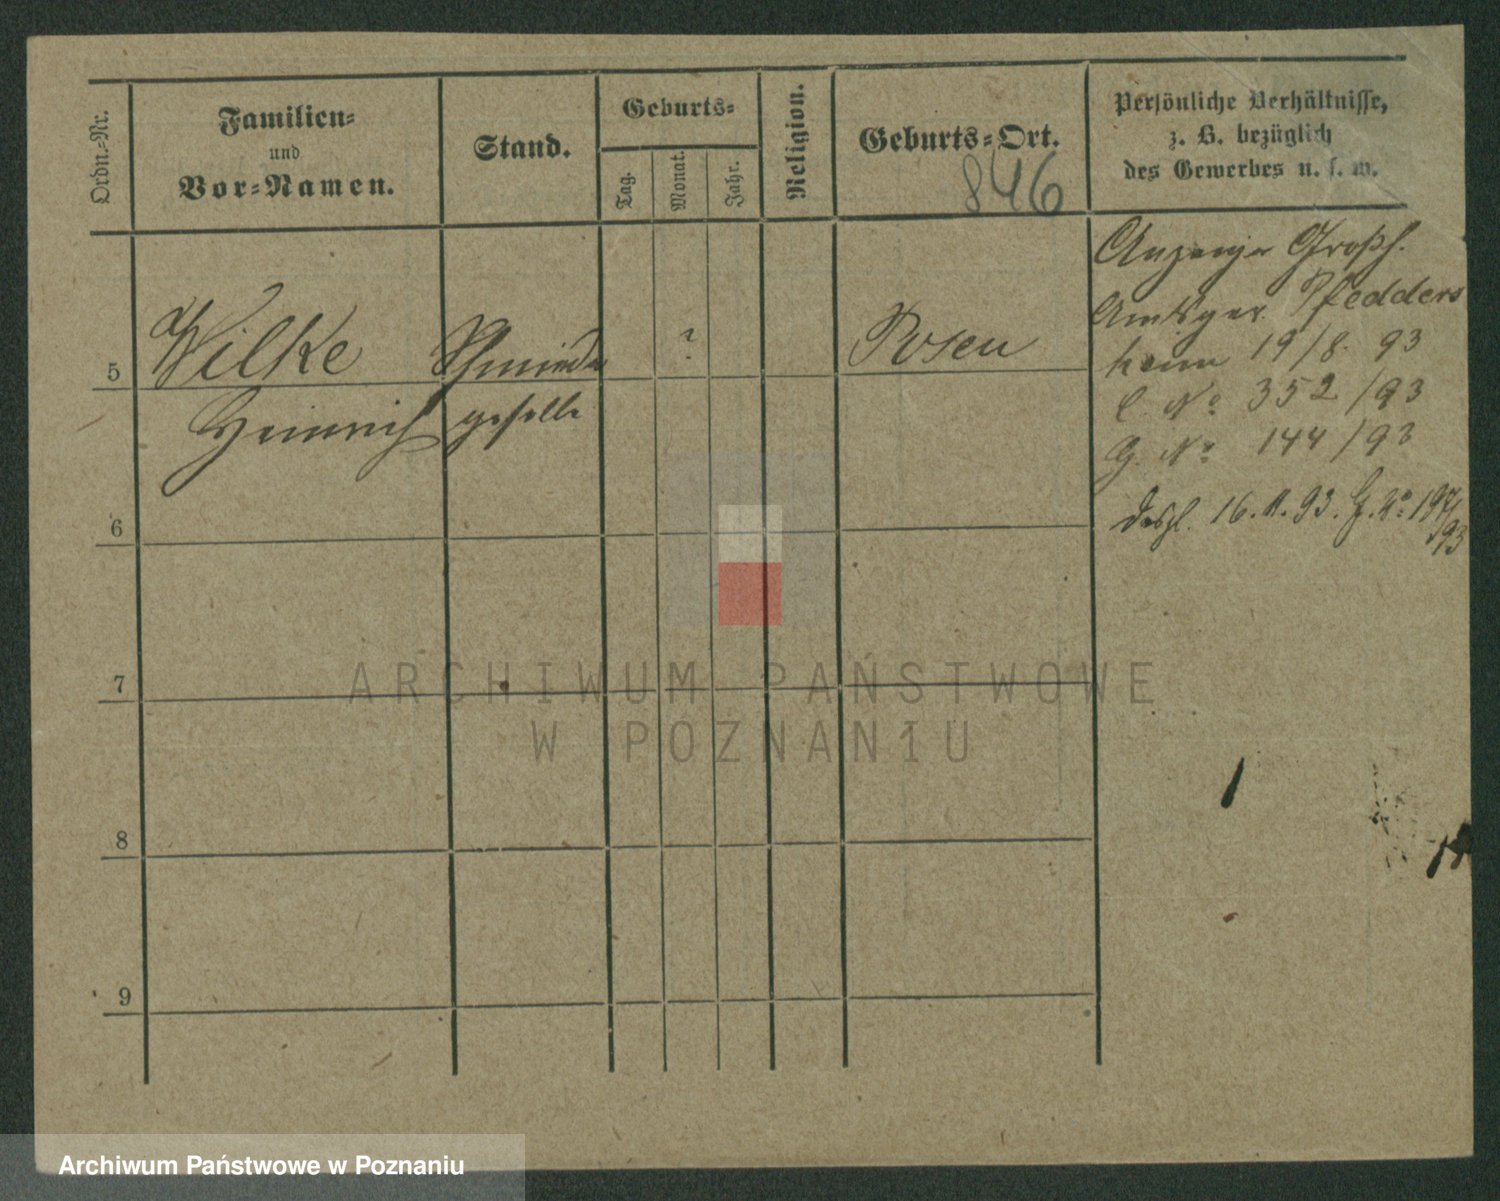 Ordn.-Nr.
Familien-
und
Vor-Namen.
Stand.
Geburts-
Tag.
Monat.
Jahr.
Religion.
Geburts-Ort.
846
Persönliche Verhältnisse,
z. B. bezüglich
des Gewerbes u. s. w.
5
Wilke
Heinrich
Schmiede
geselle
?
Posen
Anzeige Großh.
Amtsger. Pfedders
heim 19/8. 93
C. No 352/93
G. No 144/93
desgl. 16.11.93. G. No 197/
93
6
7
8
9
ARCHIWUM PAŃSTWOWE
W POZNANIU
Archiwum Państwowe w Poznaniu